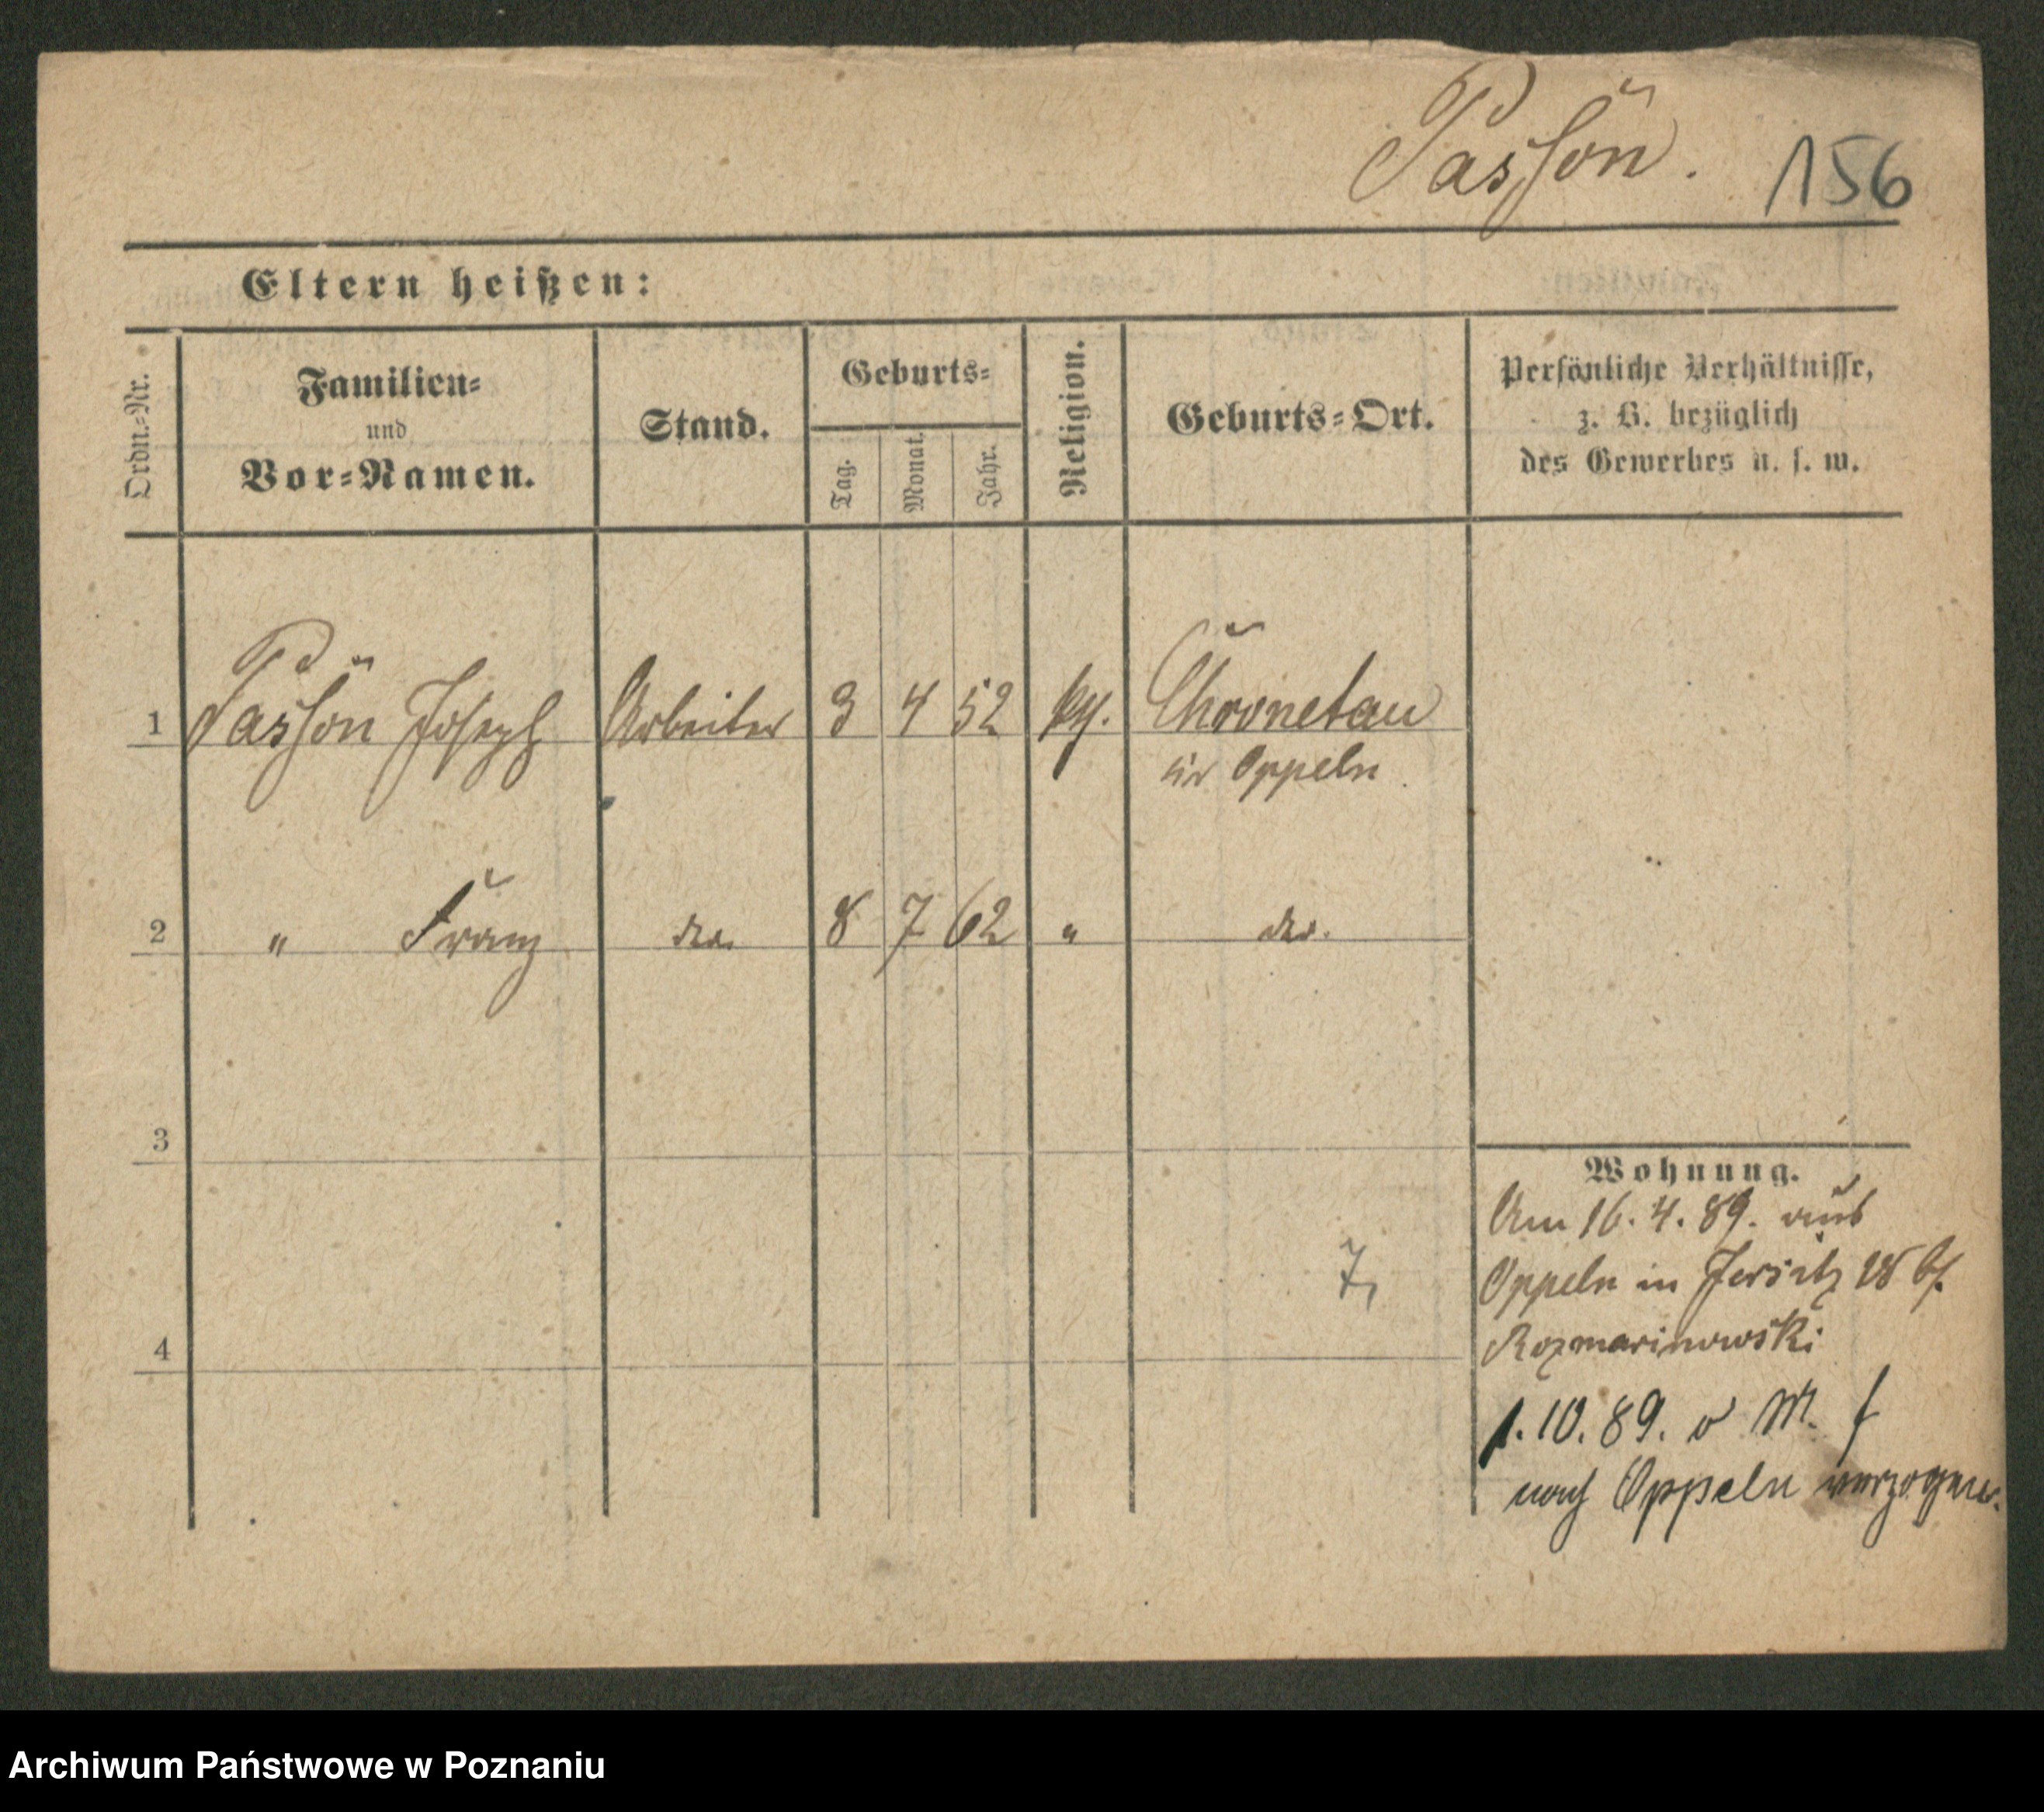 Passon. 156
Eltern heißen:
Ordn.-Nr.
Familien-
und
Vor-Namen.
Stand.
Geburts-
Tag.
Monat.
Jahr.
Religion.
Geburts-Ort.
Persönliche Verhältnisse,
z. B. bezüglich
des Gewerbes u. s. w.
1 Passon Joseph Arbeiter 3 4 52 Chronstau
Oppeln
2 " Franz do. 8 7 62 " do.
3
Wohnung.
Am 16. 4. 89. aus
Oppeln in Jersitz 18
Rozmarinowski
4
7
1. 10. 89. v M. f
nach Oppeln verzogen.
Archiwum Państwowe w Poznaniu